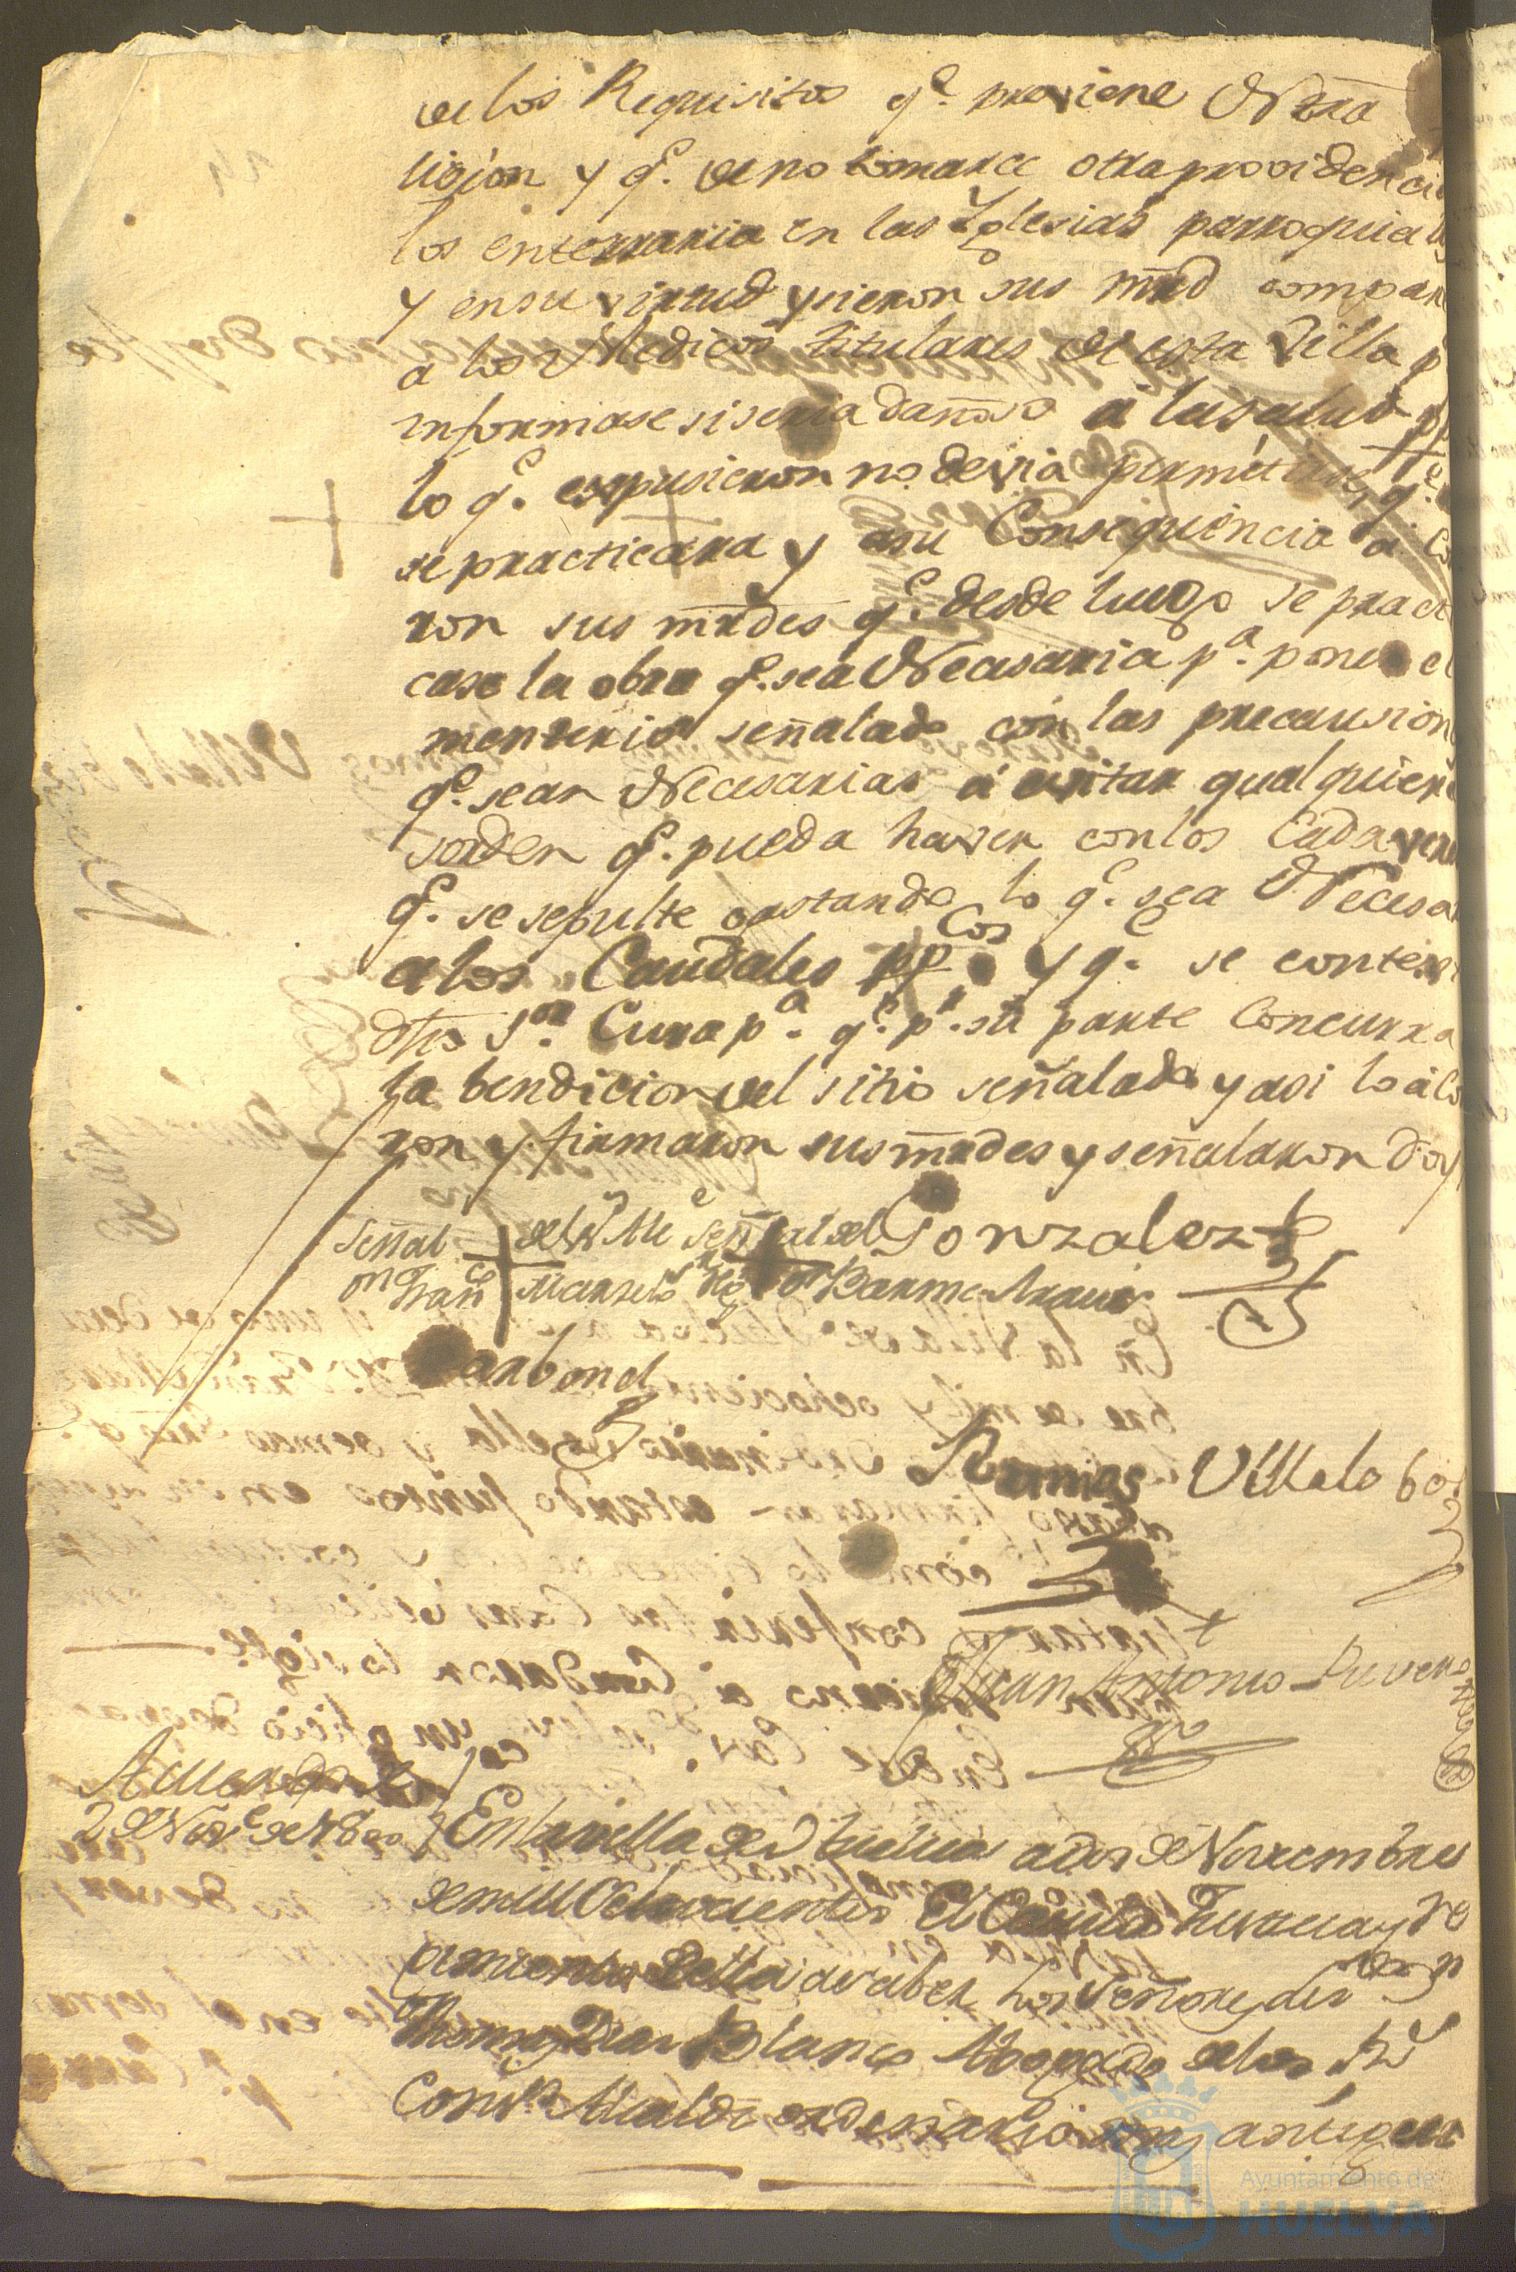 de los Requisitos q.e previene Ntra
ligion y q.e de no tomarce otra providencia
los enterraria en las Yglesias parroquial
y en su virtud ycieron sus mrd compar
a los Medicos titulares de esta Villa p
informase si seria danoso á la salud pp
lo q.e expusieron no devia permitirse, q.e
se practicara y asu Consequencia a co
ron sus mrdes q.e desde luego se practi
case la obra q.e sea Necesaria p.a poner el
menterio señalado con las precausion
q.e sean Necesarias á evitar qualquier
sorden q.e pueda haver con los Cadaver
q.e se sepulte gastando lo q.e sea Necesa
a los Caudales pp.cos y q.e se contes
dho S.or Cura p.a q.e p.r su parte Concurra
la bendicion del sitio señalado y asi lo ac
ron y firmaron sus mrdes y señalaron Doy
Señal del Sr. Alc.e Señal del Gonzalez
on Fran.co Marselo Rexor Barme
Carbonel
Ramos Villalobos
Juan Antonio
Acuerdo
2 de Nov.e de 1800 En la villa de Huelva a dos de Noviembre
de mill Ochocientos El Consejo Justicia y Re
gimiento della asaber los Señores der
Thomas Diaz Blanco Abogado de los R.s
Cons.s Alcalde ordenario mas antiguo
Ayuntamiento de
HUELVA